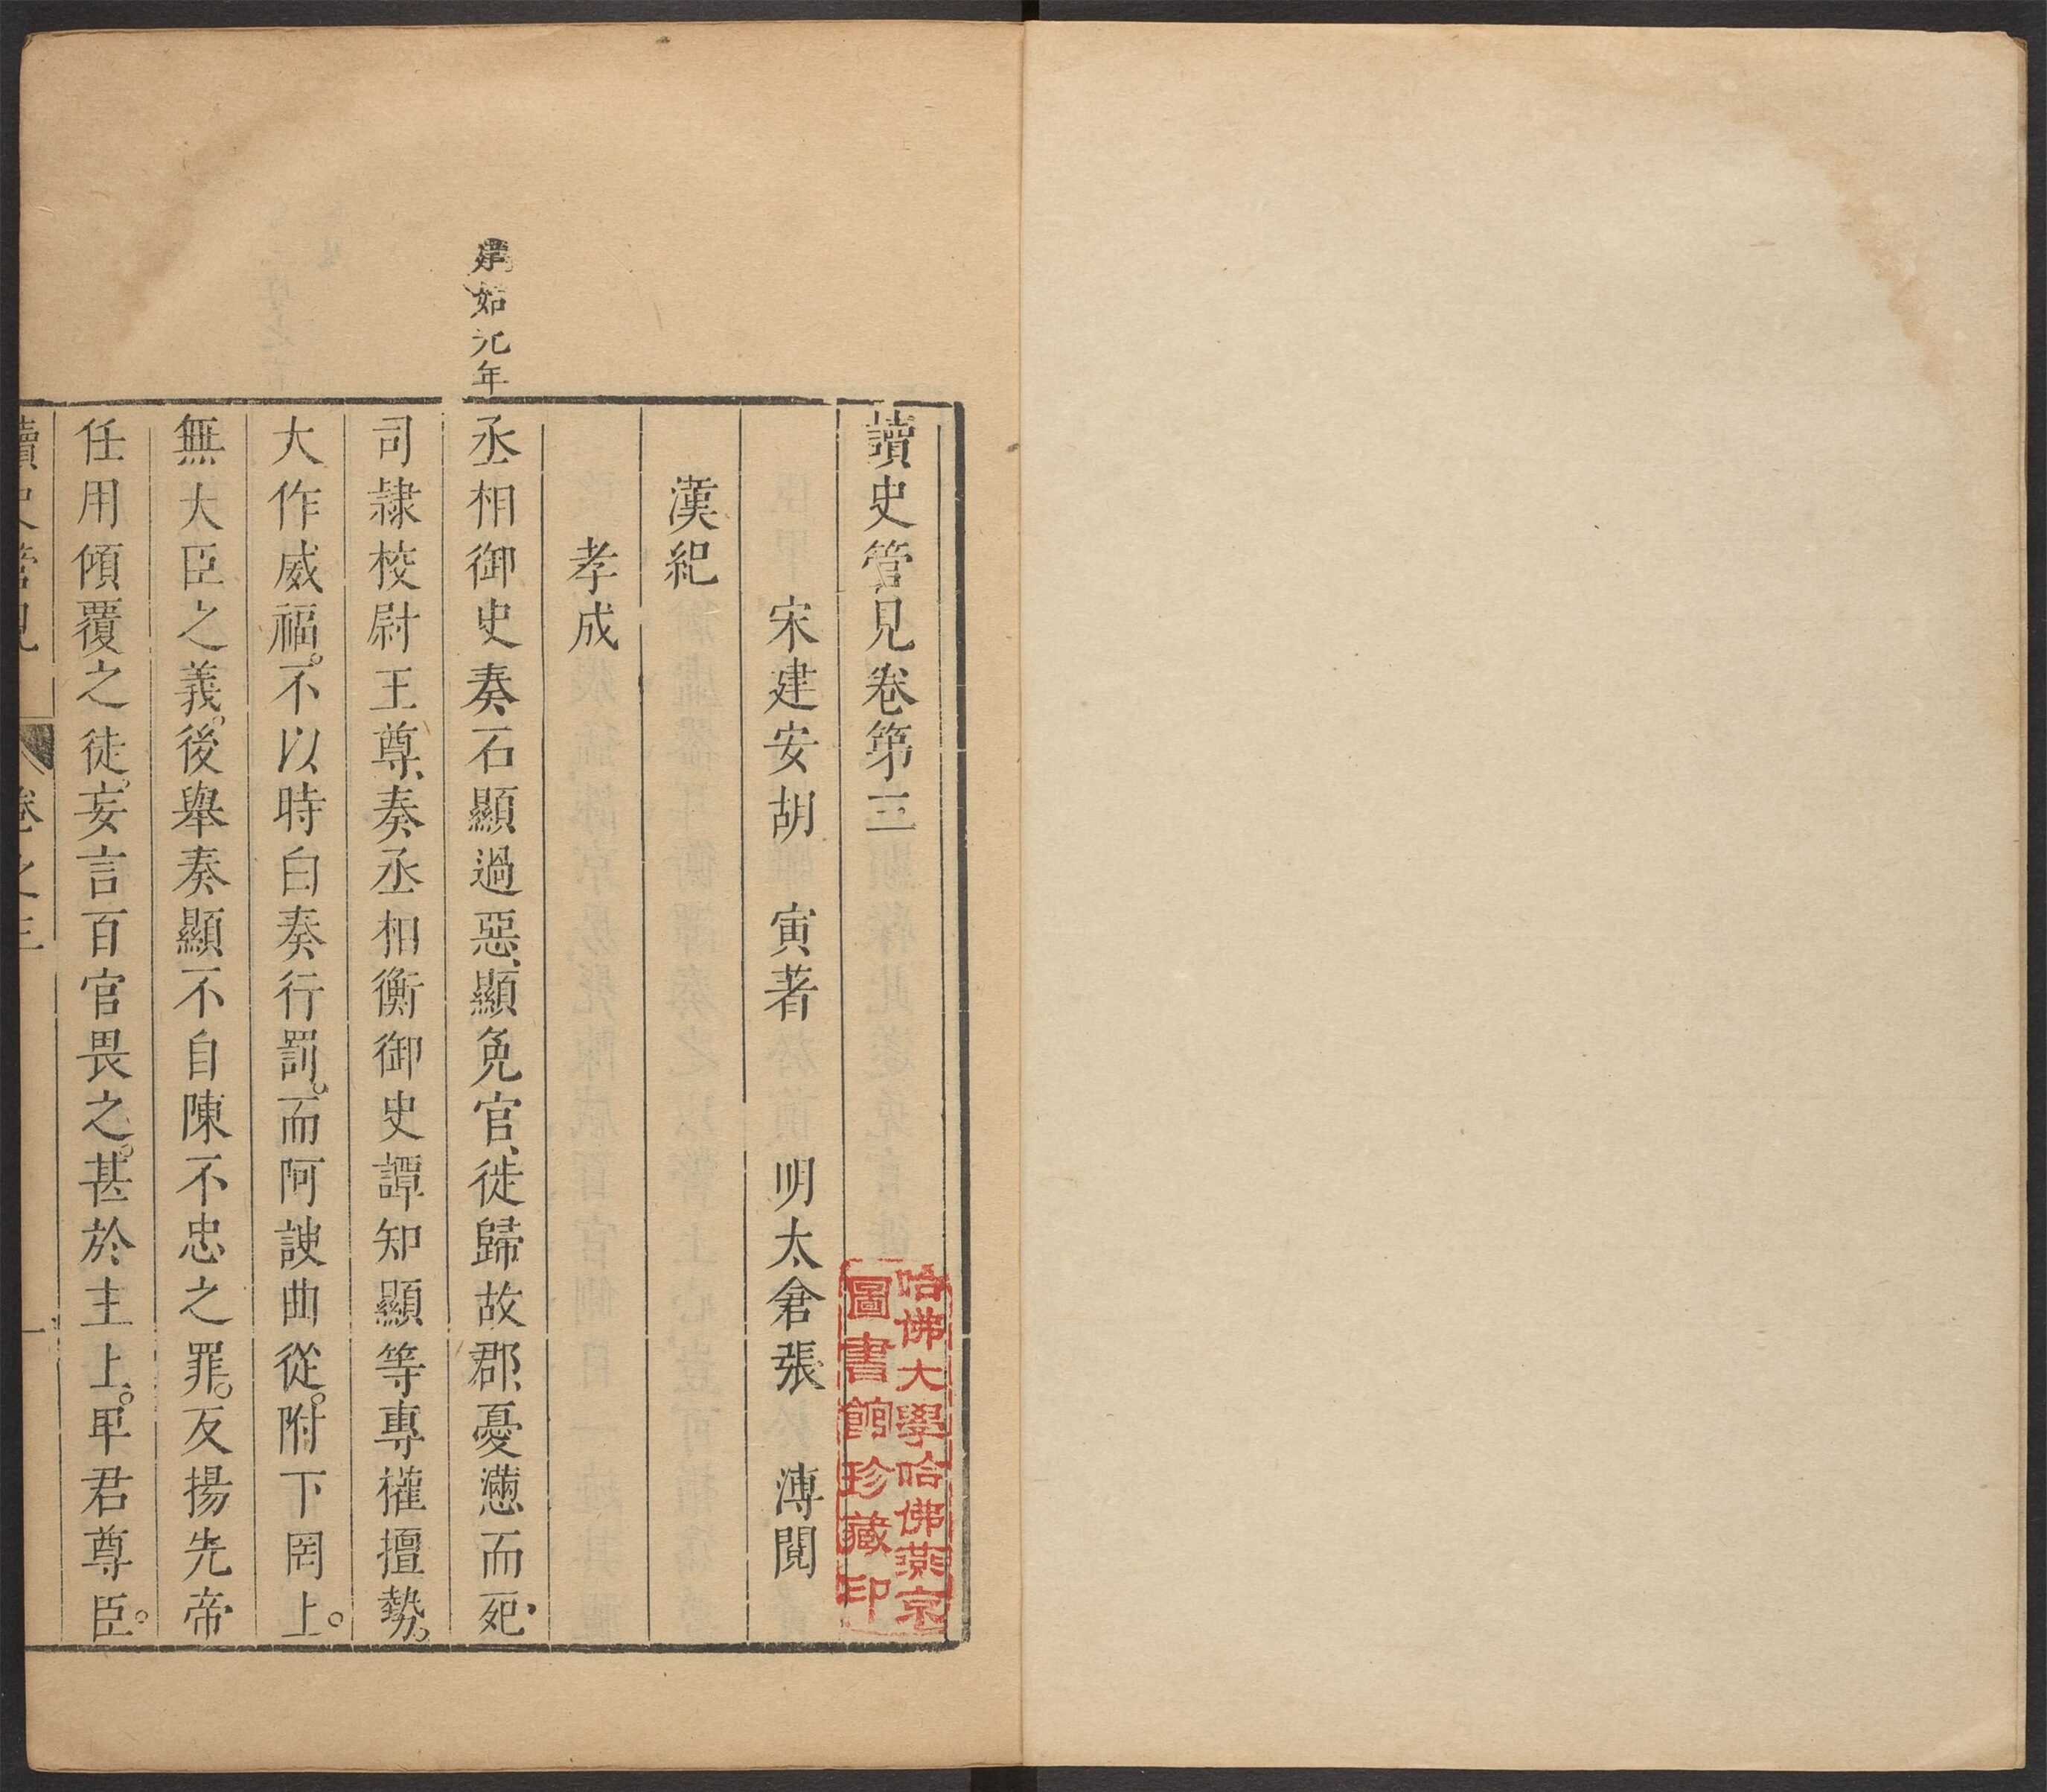 讀史管見卷第三
宋建安胡　寅著　明太倉張　溥閱
漢紀
孝成
建始元年
丞相御史奏石顯過惡、顯免官、徙歸故郡、憂懣而死、
司隸校尉王尊、奏丞相衡御史譚知顯等專權擅勢。
大作威福。不以時白奏行罰。而阿諛曲從。附下罔上。
無大臣之義。後舉奏顯不自陳不忠之罪。反揚先帝
任用傾覆之徒。妄言百官畏之。甚於主上。卑君尊臣。
讀史管見　卷之三　一
哈佛大學哈佛燕京
圖書館珍藏印